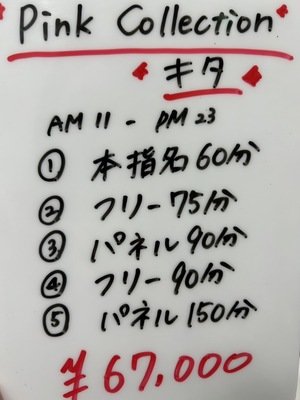 Pink Collection
キタ
AM 11 - PM 23
① 本指名60分
② フリー75分
③ パネル90分
④ フリー90分
⑤ パネル150分
¥67,000